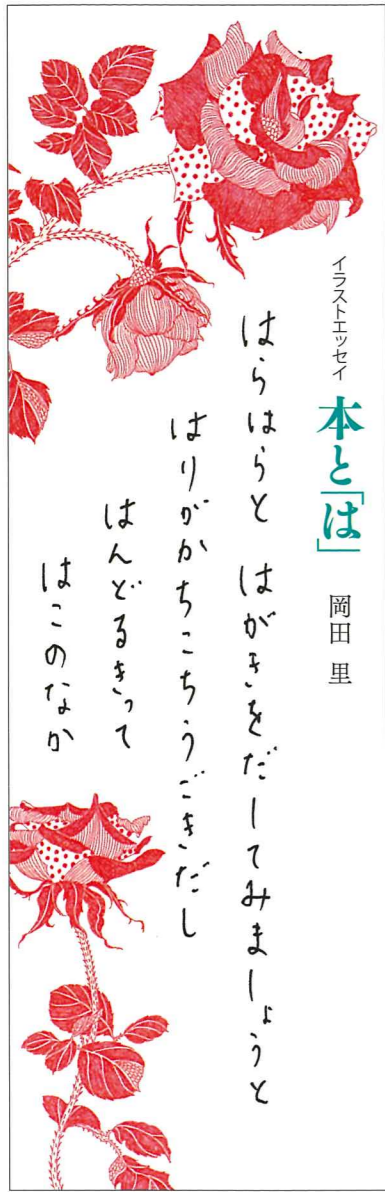 イラストエッセイ
本と「は」
岡田 里
はらはらと はがきをだしてみましょうと
はりがかちこちうごきだし
はんどるきって
はこのなか